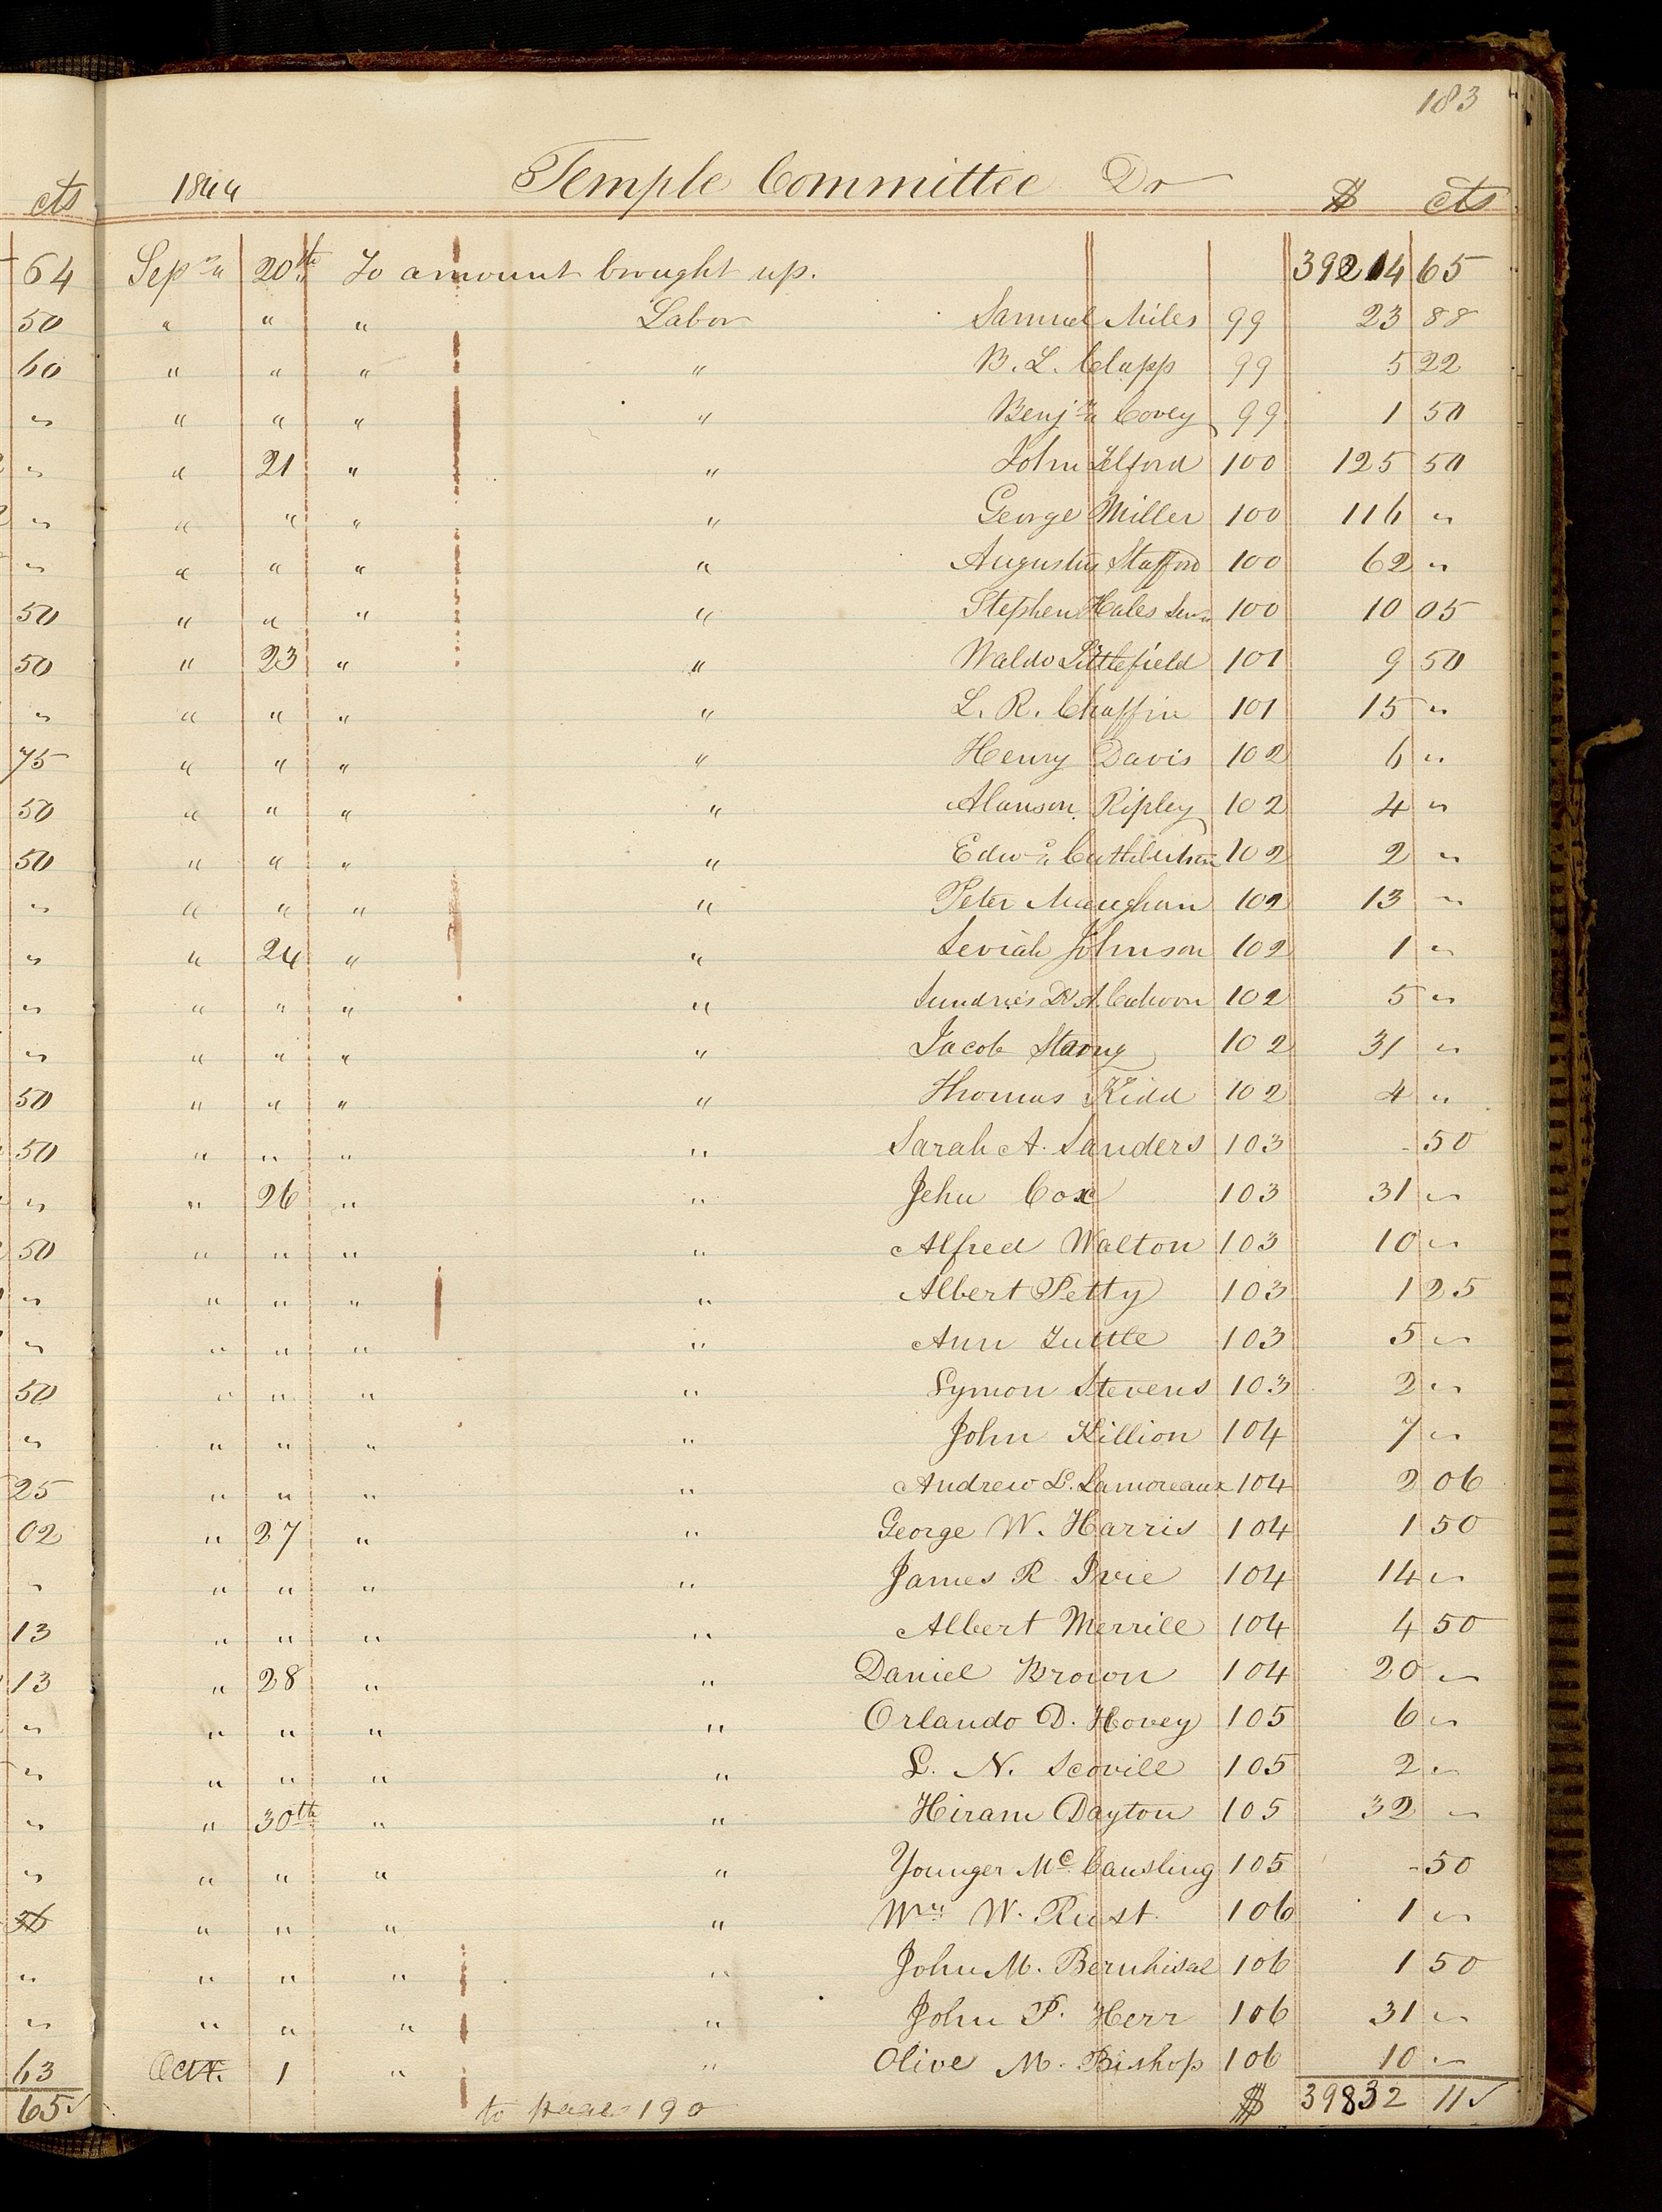 183
cts 1844 Temple Committee Dr $ cts
64 Sepr 20th To amount brought up. 39214 65
50 " " " Labor Samuel Miles 99 23 88
60 " " " " B. L. Clapp 99 5 22
" " " " " Benjn Covey 99 1 50
" " 21 " " John Telford 100 125 50
" " " " " George Miller 100 116 "
" " " " " Augustus Stafford 100 62 "
50 " " " " Stephen Hales Senr 100 10 05
50 " 23 " " Waldo Littlefield 101 9 50
" " " " " L. R. Chaffin 101 15 "
75 " " " " Henry Davis 102 6 "
50 " " " " Alanson Ripley 102 4 "
50 " " " " Edwd Cuthbertson 102 2 "
" " " " " Peter Maughan 102 13 "
" " 24 " " Seviah Johnson 102 1 "
" " " " " Sundries Dr A. Cahoon 102 5 "
" " " " " Jacob Strong 102 31 "
50 " " " " Thomas Kidd 102 4 "
50 " " " " Sarah A. Sanders 103 - 50
" " 26 " " Jehu Cox 103 31 "
50 " " " " Alfred Walton 103 10 "
" " " " " Albert Petty 103 1 25
" " " " " Ann Tuttle 103 5 "
50 " " " " Lymon Stevens 103 2 "
" " " " " John Killion 104 7 "
25 " " " " Andrew L. Lamoreaux 104 2 06
02 " 27 " " George W. Harris 104 1 50
" " " " " James R Ivie 104 14 "
13 " " " " Albert Merrill 104 4 50
13 " 28 " " Daniel Brown 104 20 "
" " " " " Orlando D. Hovey 105 6 "
" " " " " L. N. Scovill 105 2 "
" " 30th " " Hiram Dayton 105 32 "
" " " " " Younger Mc Causling 105 - 50
" " " " Wm W. Rust. 106 1 "
" " " " " John M. Bernhisal 106 1 50
" " " " " John P. Herr 106 31 "
63 Oct. 1 " " Olive M. Bishop 106 10 "
65 ✓ to page 190 $ 39832 11 ✓